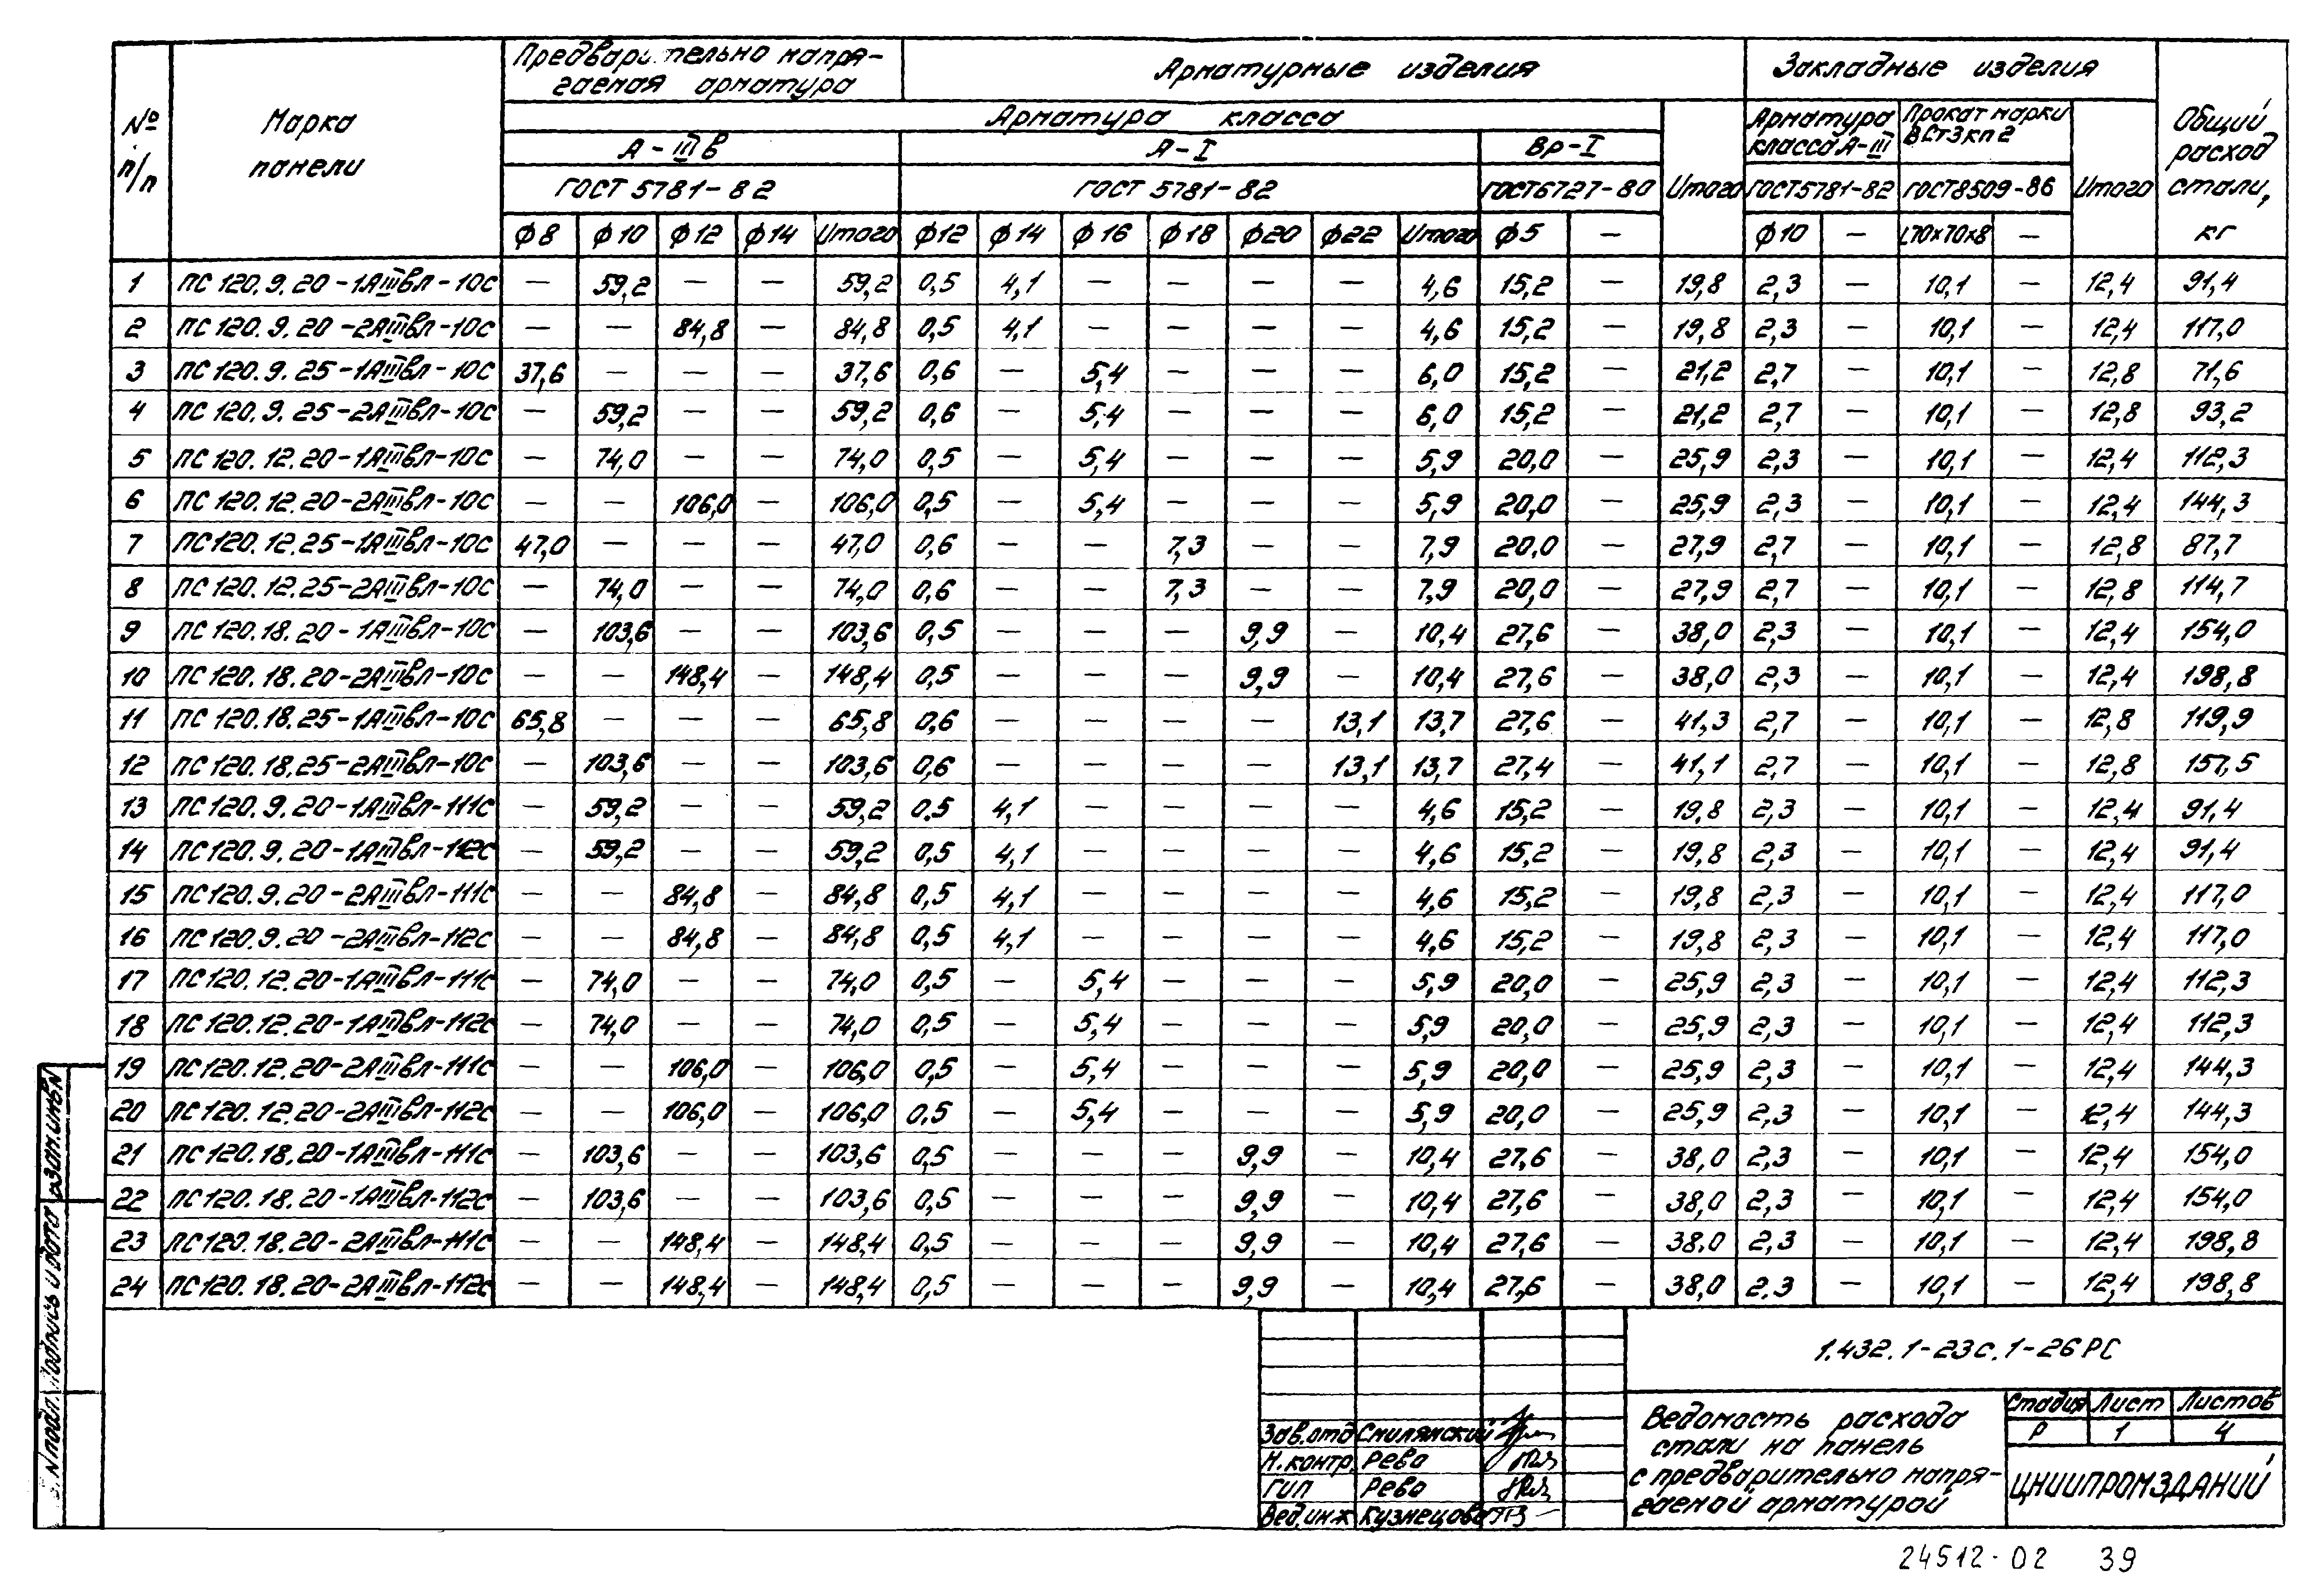 № п/п
Марка панели
Предварительно напря-
гаемая арматура
Арматурные изделия
Закладные изделия
Общий расход стали, кг
Арматура класса
Арматура класса А-III
Прокат марки ВСт3кп2
А-IIIв
А-I
Вр-I
ГОСТ 5781-82
ГОСТ 5781-82
ГОСТ 6727-80
Итого
ГОСТ 5781-82
ГОСТ 8509-86
Итого
ф8 ф10 ф12 ф14 Итого ф12 ф14 ф16 ф18 ф20 ф22 Итого ф5 — ф10 — L70×70×8 —
1 ПС 120.9.20-1АIIIвл-10с — 59,2 — — 59,2 0,5 4,1 — — — — 4,6 15,2 — 19,8 2,3 — 10,1 — 12,4 91,4
2 ПС 120.9.20-2АIIIвл-10с — — 84,8 — 84,8 0,5 4,1 — — — — 4,6 15,2 — 19,8 2,3 — 10,1 — 12,4 117,0
3 ПС 120.9.25-1АIIIвл-10с 37,6 — — — 37,6 0,6 — 5,4 — — — 6,0 15,2 — 21,2 2,7 — 10,1 — 12,8 71,6
4 ПС 120.9.25-2АIIIвл-10с — 59,2 — — 59,2 0,6 — 5,4 — — — 6,0 15,2 — 21,2 2,7 — 10,1 — 12,8 93,2
5 ПС 120.12.20-1АIIIвл-10с — 74,0 — — 74,0 0,5 — 5,4 — — — 5,9 20,0 — 25,9 2,3 — 10,1 — 12,4 112,3
6 ПС 120.12.20-2АIIIвл-10с — — 106,0 — 106,0 0,5 — 5,4 — — — 5,9 20,0 — 25,9 2,3 — 10,1 — 12,4 144,3
7 ПС 120.12.25-1АIIIвл-10с 47,0 — — — 47,0 0,6 — — 7,3 — — 7,9 20,0 — 27,9 2,7 — 10,1 — 12,8 87,7
8 ПС 120.12.25-2АIIIвл-10с — 74,0 — — 74,0 0,6 — — 7,3 — — 7,9 20,0 — 27,9 2,7 — 10,1 — 12,8 114,7
9 ПС 120.18.20-1АIIIвл-10с — 103,6 — — 103,6 0,5 — — — 9,9 — 10,4 27,6 — 38,0 2,3 — 10,1 — 12,4 154,0
10 ПС 120.18.20-2АIIIвл-10с — — 148,4 — 148,4 0,5 — — — 9,9 — 10,4 27,6 — 38,0 2,3 — 10,1 — 12,4 198,8
11 ПС 120.18.25-1АIIIвл-10с 65,8 — — — 65,8 0,6 — — — — 13,1 13,7 27,6 — 41,3 2,7 — 10,1 — 12,8 119,9
12 ПС 120.18.25-2АIIIвл-10с — 103,6 — — 103,6 0,6 — — — — 13,1 13,7 27,4 — 41,1 2,7 — 10,1 — 12,8 157,5
13 ПС 120.9.20-1АIIIвл-111с — 59,2 — — 59,2 0,5 4,1 — — — — 4,6 15,2 — 19,8 2,3 — 10,1 — 12,4 91,4
14 ПС 120.9.20-1АIIIвл-112с — 59,2 — — 59,2 0,5 4,1 — — — — 4,6 15,2 — 19,8 2,3 — 10,1 — 12,4 91,4
15 ПС 120.9.20-2АIIIвл-111с — — 84,8 — 84,8 0,5 4,1 — — — — 4,6 15,2 — 19,8 2,3 — 10,1 — 12,4 117,0
16 ПС 120.9.20-2АIIIвл-112с — — 84,8 — 84,8 0,5 4,1 — — — — 4,6 15,2 — 19,8 2,3 — 10,1 — 12,4 117,0
17 ПС 120.12.20-1АIIIвл-111с — 74,0 — — 74,0 0,5 — 5,4 — — — 5,9 20,0 — 25,9 2,3 — 10,1 — 12,4 112,3
18 ПС 120.12.20-1АIIIвл-112с — 74,0 — — 74,0 0,5 — 5,4 — — — 5,9 20,0 — 25,9 2,3 — 10,1 — 12,4 112,3
19 ПС 120.12.20-2АIIIвл-111с — — 106,0 — 106,0 0,5 — 5,4 — — — 5,9 20,0 — 25,9 2,3 — 10,1 — 12,4 144,3
20 ПС 120.12.20-2АIIIвл-112с — — 106,0 — 106,0 0,5 — 5,4 — — — 5,9 20,0 — 25,9 2,3 — 10,1 — 12,4 144,3
21 ПС 120.18.20-1АIIIвл-111с — 103,6 — — 103,6 0,5 — — — 9,9 — 10,4 27,6 — 38,0 2,3 — 10,1 — 12,4 154,0
22 ПС 120.18.20-1АIIIвл-112с — 103,6 — — 103,6 0,5 — — — 9,9 — 10,4 27,6 — 38,0 2,3 — 10,1 — 12,4 154,0
23 ПС 120.18.20-2АIIIвл-111с — — 148,4 — 148,4 0,5 — — — 9,9 — 10,4 27,6 — 38,0 2,3 — 10,1 — 12,4 198,8
24 ПС 120.18.20-2АIIIвл-112с — — 148,4 — 148,4 0,5 — — — 9,9 — 10,4 27,6 — 38,0 2,3 — 10,1 — 12,4 198,8
Взам.инв.N
Подпись и дата
N подл.
1.432.1-23с.1-26РС
Зав.отд Смилянский
Н.контр. Рево
ГИП Рево
Вед.инж Кузнецова
Ведомость расхода
стали на панель
с предварительно напря-
гаемой арматурой
Стадия Лист Листов
Р 1 4
ЦНИИПРОМЗДАНИЙ
24512-02 39